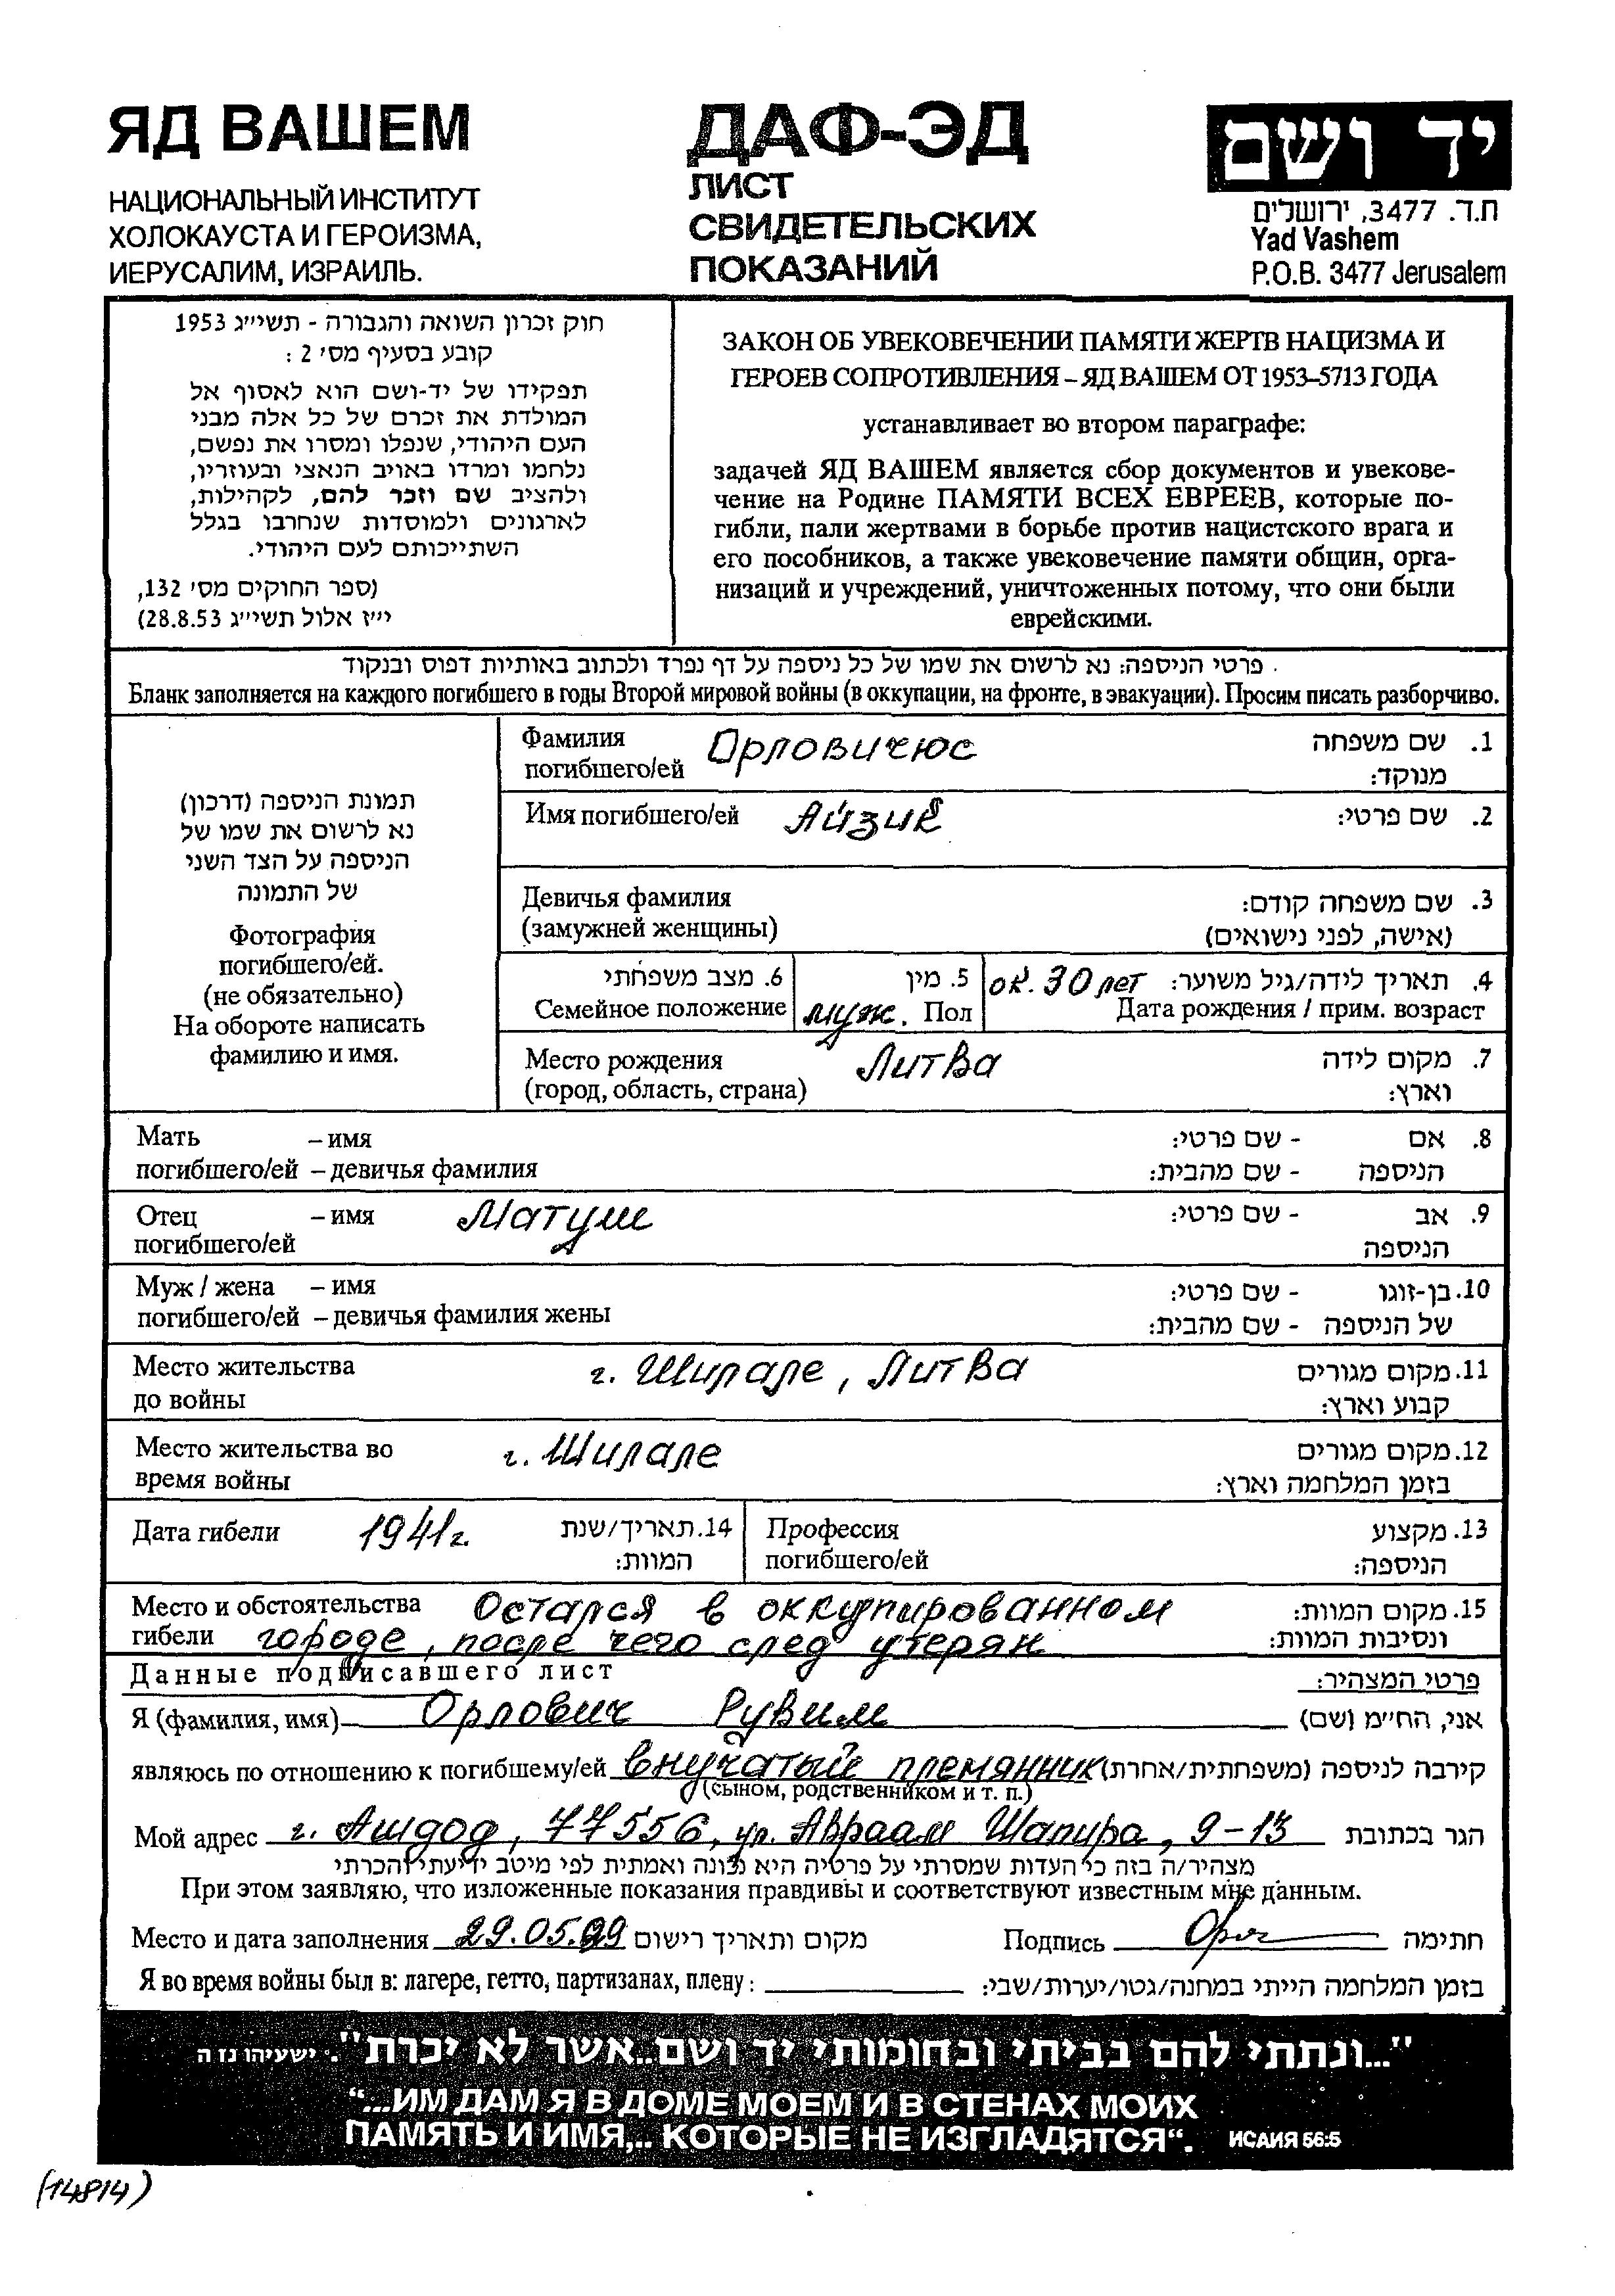 ЯД ВАШЕМ
НАЦИОНАЛЬНЫЙ ИНСТИТУТ
ХОЛОКАУСТА И ГЕРОИЗМА,
ИЕРУСАЛИМ, ИЗРАИЛЬ.
ДАФ-ЭД
ЛИСТ
СВИДЕТЕЛЬСКИХ
ПОКАЗАНИЙ
יד ושם
ת.ד. 3477, ירושלים
Yad Vashem
P.O.B. 3477 Jerusalem
חוק זכרון השואה והגבורה - תשי״ג 1953
קובע בסעיף מס׳ 2 :
תפקידו של יד-ושם הוא לאסוף אל
המולדת את זכרם של כל אלה מבני
העם היהודי, שנפלו ומסרו את נפשם,
נלחמו ומרדו באויב הנאצי ובעוזריו,
ולהציב שם וזכר להם, לקהילות,
לארגונים ולמוסדות שנחרבו בגלל
השתייכותם לעם היהודי.
(ספר החוקים מס׳ 132,
י״ז אלול תשי״ג 28.8.53)
ЗАКОН ОБ УВЕКОВЕЧЕНИИ ПАМЯТИ ЖЕРТВ НАЦИЗМА И
ГЕРОЕВ СОПРОТИВЛЕНИЯ – ЯД ВАШЕМ ОТ 1953–5713 ГОДА
устанавливает во втором параграфе:
задачей ЯД ВАШЕМ является сбор документов и увекове-
чение на Родине ПАМЯТИ ВСЕХ ЕВРЕЕВ, которые по-
гибли, пали жертвами в борьбе против нацистского врага и
его пособников, а также увековечение памяти общин, орга-
низаций и учреждений, уничтоженных потому, что они были
еврейскими.
פרטי הניספה: נא לרשום את שמו של כל ניספה על דף נפרד ולכתוב באותיות דפוס ובנקוד
Бланк заполняется на каждого погибшего в годы Второй мировой войны (в оккупации, на фронте, в эвакуации). Просим писать разборчиво.
תמונת הניספה (דרכון)
נא לרשום את שמו של
הניספה על הצד השני
של התמונה
Фотография
погибшего/ей.
(не обязательно)
На обороте написать
фамилию и имя.
Фамилия Орловичюс 1. שם משפחה
погибшего/ей מנוקד:
Имя погибшего/ей Айзик 2. שם פרטי:
Девичья фамилия 3. שם משפחה קודם:
(замужней женщины) (אישה, לפני נישואים)
6. מצב משפחתי 5. מין ок. 30 лет 4. תאריך לידה/גיל משוער:
Семейное положение муж. Пол Дата рождения / прим. возраст
Место рождения Литва 7. מקום לידה
(город, область, страна) וארץ:
Мать – имя 8. אם - שם פרטי:
погибшего/ей – девичья фамилия הניספה - שם מהבית:
Отец – имя Матуш 9. אב - שם פרטי:
погибшего/ей הניספה
Муж / жена – имя 10. בן-זוגו - שם פרטי:
погибшего/ей – девичья фамилия жены של הניספה - שם מהבית:
Место жительства г. Шилале, Литва 11. מקום מגורים
до войны קבוע וארץ:
Место жительства во г. Шилале 12. מקום מגורים
время войны בזמן המלחמה וארץ:
Дата гибели 1941г. 14. תאריך/שנת Профессия 13. מקצוע
המוות: погибшего/ей הניספה:
Место и обстоятельства Остался в оккупированном 15. מקום המוות:
гибели городе, после чего след утерян ונסיבות המוות:
Данные подписавшего лист פרטי המצהיר:
Я (фамилия, имя) Орлович Рувим אני, הח״מ (שם)
являюсь по отношению к погибшему/ей внучатый племянник קירבה לניספה (משפחתית/אחרת)
(сыном, родственником и т. п.)
Мой адрес г. Ашдод, 77556, ул. Авраам Шапира, 9-13 הגר בכתובת
מצהיר/ה בזה כי העדות שמסרתי על פרטיה היא נכונה ואמתית לפי מיטב ידיעתי והכרתי
При этом заявляю, что изложенные показания правдивы и соответствуют известным мне данным.
Место и дата заполнения 29.05.99 מקום ותאריך רישום Подпись חתימה
Я во время войны был в: лагере, гетто, партизанах, плену: בזמן המלחמה הייתי במחנה/גטו/יערות/שבי:
"...ונתתי להם בביתי ובחומותי יד ושם...אשר לא יכרת". ישעיהו נז ה
“...ИМ ДАМ Я В ДОМЕ МОЕМ И В СТЕНАХ МОИХ
ПАМЯТЬ И ИМЯ,.. КОТОРЫЕ НЕ ИЗГЛАДЯТСЯ“. ИСАИЯ 56:5
(14814)